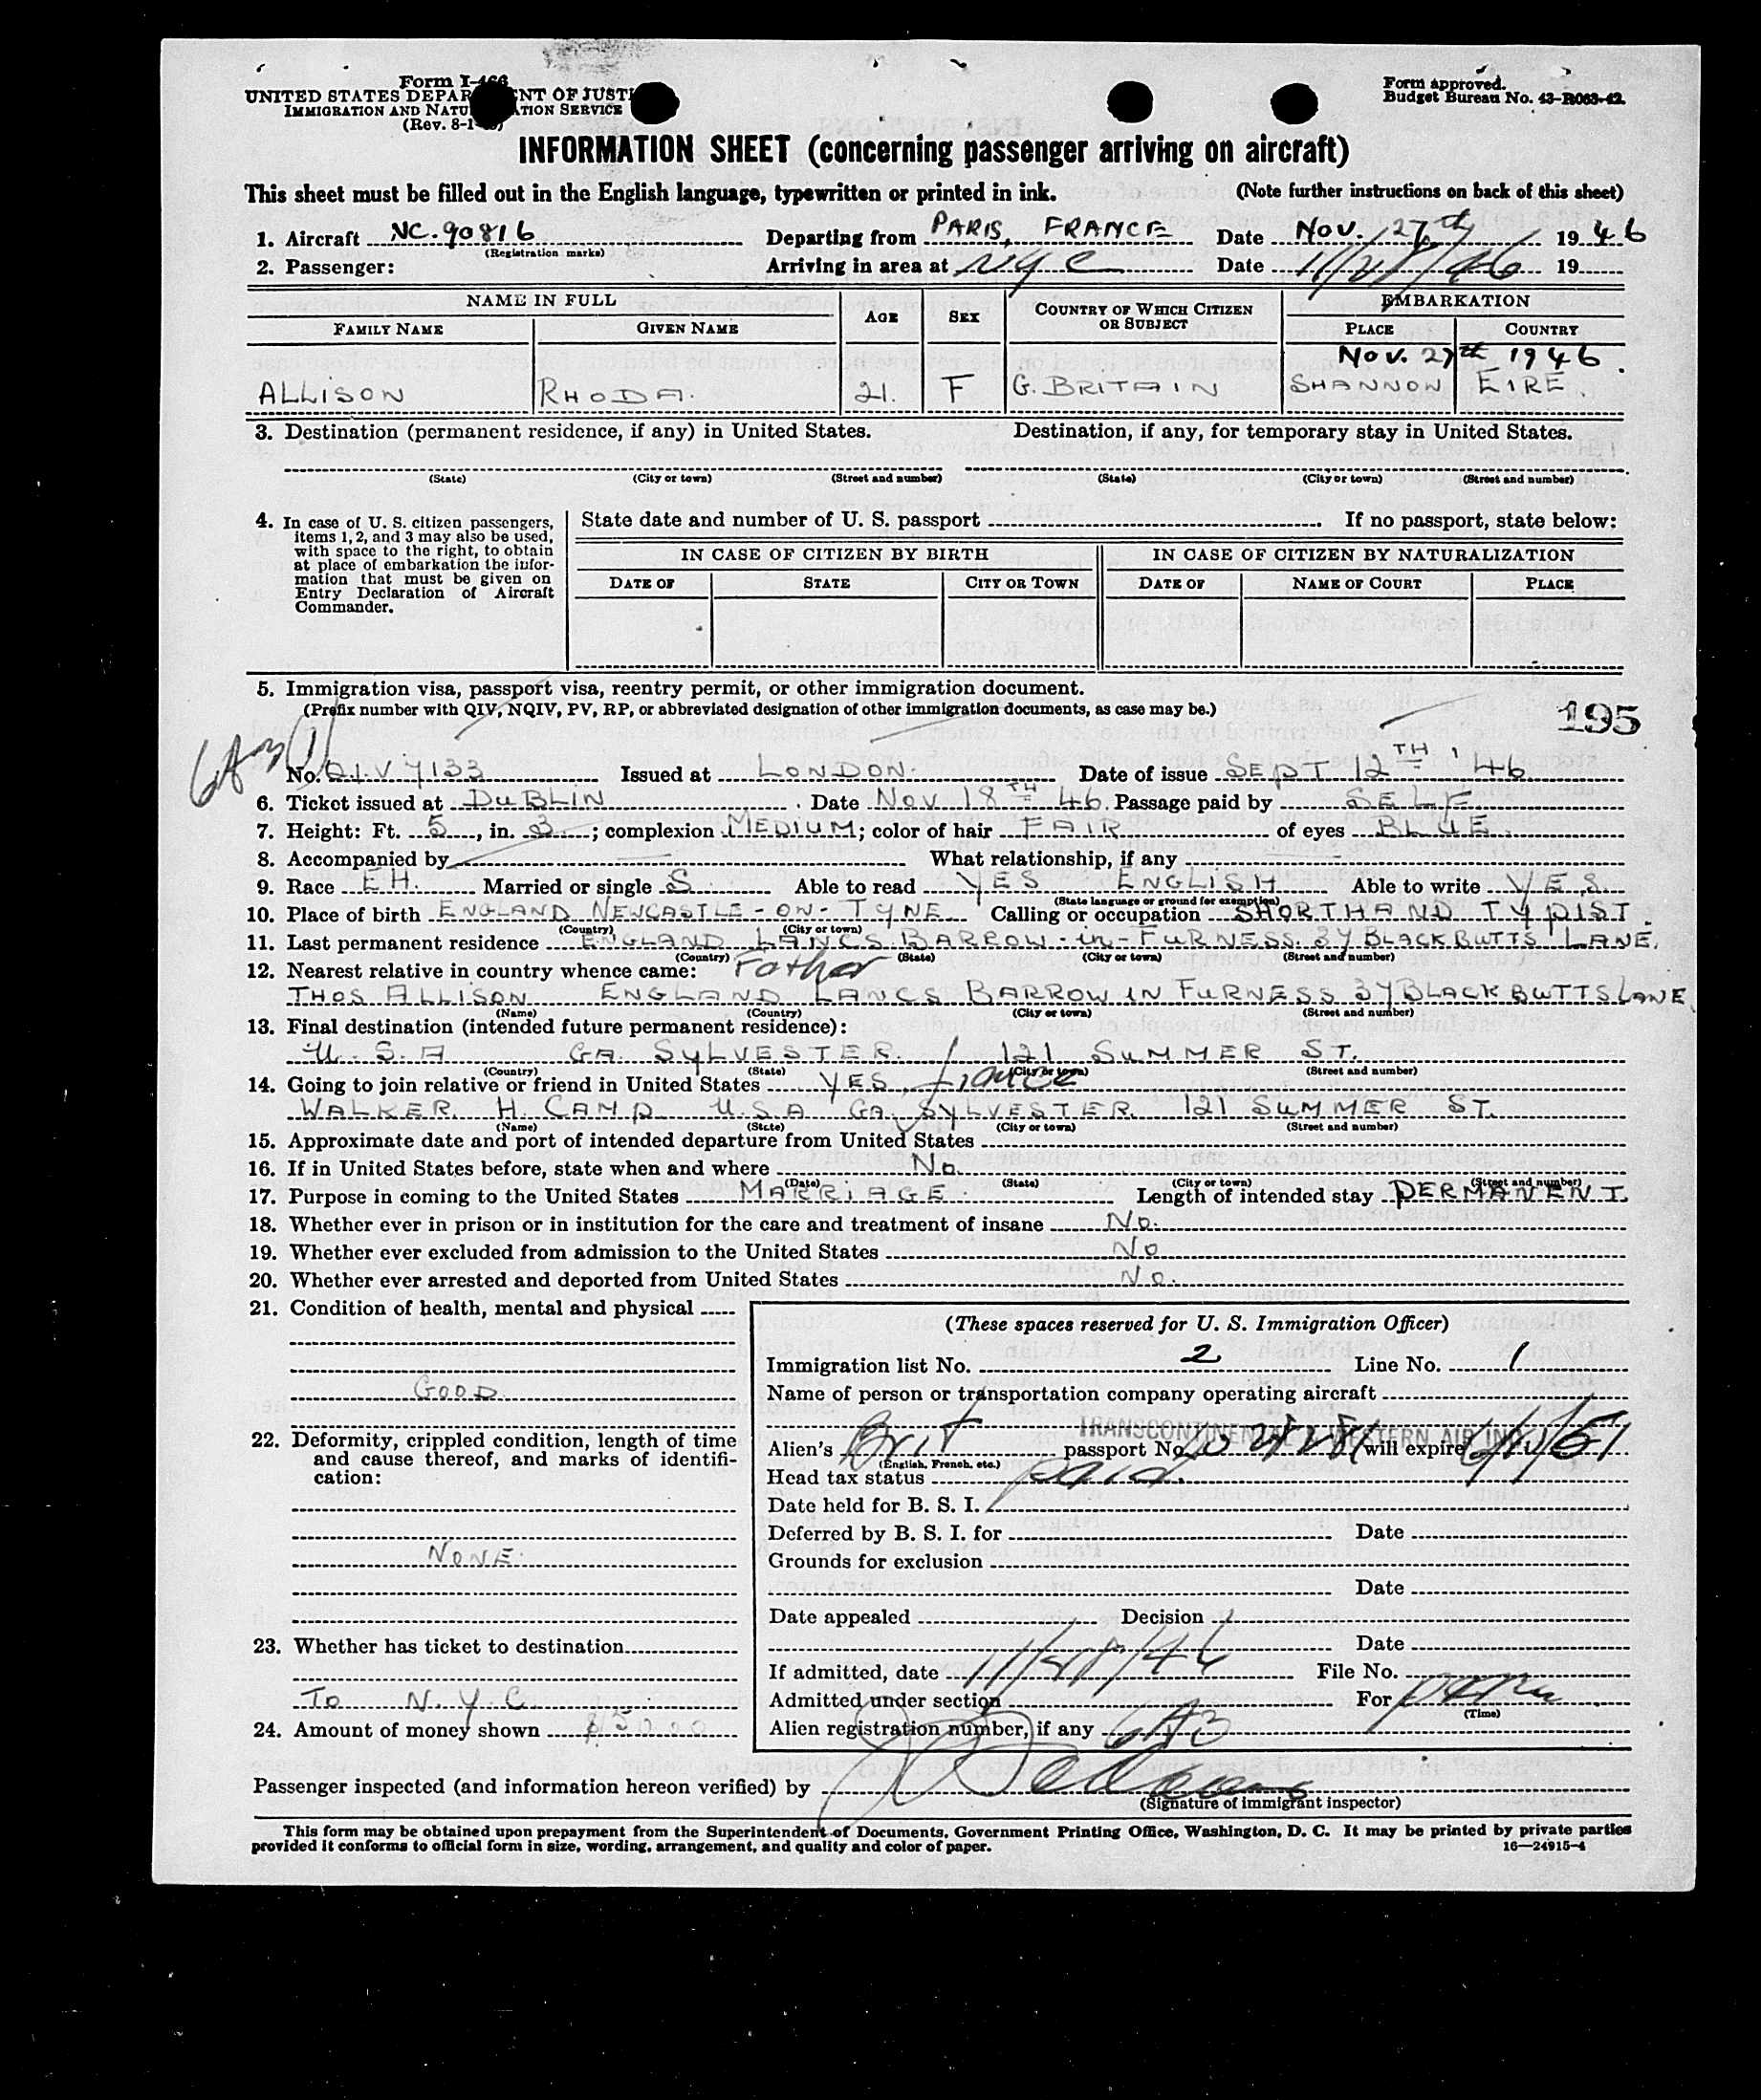 Form I-466
UNITED STATES DEPAR NT OF JUSTI
IMMIGRATION AND NATU ATION SERVICE
(Rev. 8-1
Form approved.
Budget Bureau No. 43-R063-42.
INFORMATION SHEET (concerning passenger arriving on aircraft)
This sheet must be filled out in the English language, typewritten or printed in ink. (Note further instructions on back of this sheet)
1. Aircraft NC. 90816 Departing from PARIS, FRANCE Date NOV. 27th 1946
(Registration marks)
2. Passenger: Arriving in area at NYC Date 11/28/46 19
NAME IN FULL AGE SEX COUNTRY OF WHICH CITIZEN OR SUBJECT EMBARKATION
FAMILY NAME GIVEN NAME PLACE COUNTRY
NOV. 27th 1946.
ALLISON RHODA. 21. F G. BRITAIN SHANNON EIRE.
3. Destination (permanent residence, if any) in United States. Destination, if any, for temporary stay in United States.
(State) (City or town) (Street and number) (State) (City or town) (Street and number)
4. In case of U. S. citizen passengers, items 1, 2, and 3 may also be used, with space to the right, to obtain at place of embarkation the information that must be given on Entry Declaration of Aircraft Commander.
State date and number of U. S. passport If no passport, state below:
IN CASE OF CITIZEN BY BIRTH IN CASE OF CITIZEN BY NATURALIZATION
DATE OF STATE CITY OR TOWN DATE OF NAME OF COURT PLACE
5. Immigration visa, passport visa, reentry permit, or other immigration document.
(Prefix number with QIV, NQIV, PV, RP, or abbreviated designation of other immigration documents, as case may be.)
195
6A3(1)
No. QIV 7133 Issued at LONDON. Date of issue SEPT 12TH '46
6. Ticket issued at DUBLIN. Date NOV 18TH 46. Passage paid by SELF
7. Height: Ft. 5, in. 3; complexion MEDIUM; color of hair FAIR of eyes BLUE.
8. Accompanied by What relationship, if any
9. Race EH. Married or single S Able to read YES ENGLISH Able to write YES.
(State language or ground for exemption)
10. Place of birth ENGLAND NEWCASTLE-ON-TYNE Calling or occupation SHORTHAND TYPIST.
(Country) (City or town)
11. Last permanent residence ENGLAND LANCS BARROW-IN-FURNESS. 37 BLACKBUTTS LANE.
(Country) (State) (City or town) (Street and number)
12. Nearest relative in country whence came: Father
THOS ALLISON ENGLAND LANCS BARROW IN FURNESS 37 BLACKBUTTS LANE
(Name) (Country) (City or town) (Street and number)
13. Final destination (intended future permanent residence):
U.S.A GA. SYLVESTER. / 121 SUMMER ST.
(Country) (State) (City or town) (Street and number)
14. Going to join relative or friend in United States YES, fiance
WALKER. H. CAMP U.S.A GA. SYLVESTER. 121 SUMMER ST.
(Name) (State) (City or town) (Street and number)
15. Approximate date and port of intended departure from United States
16. If in United States before, state when and where No.
(Date) (State) (City or town) (Street and number)
17. Purpose in coming to the United States MARRIAGE. Length of intended stay PERMANENT.
18. Whether ever in prison or in institution for the care and treatment of insane No.
19. Whether ever excluded from admission to the United States No
20. Whether ever arrested and deported from United States No.
21. Condition of health, mental and physical
GOOD
22. Deformity, crippled condition, length of time and cause thereof, and marks of identification:
NONE.
23. Whether has ticket to destination
To N.Y.C.
24. Amount of money shown $50.00
(These spaces reserved for U. S. Immigration Officer)
Immigration list No. 2 Line No. 1
Name of person or transportation company operating aircraft
TRANSCONTINENTAL & WESTERN AIR INC.
Alien's Brit passport No. will expire
(English, French, etc.)
Head tax status paid.
Date held for B. S. I.
Deferred by B. S. I. for Date
Grounds for exclusion
Date
Date appealed Decision
Date
If admitted, date 11/28/46 File No.
Admitted under section For perm
(Time)
Alien registration number, if any 6A3
Passenger inspected (and information hereon verified) by
(Signature of immigrant inspector)
This form may be obtained upon prepayment from the Superintendent of Documents, Government Printing Office, Washington, D. C. It may be printed by private parties
provided it conforms to official form in size, wording, arrangement, and quality and color of paper. 16—24915-4